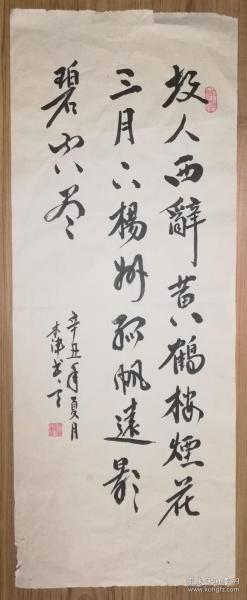 故人西辭黄鶴楼煙花
三月下楊州孤帆遠影
碧空尽
辛丑年夏月